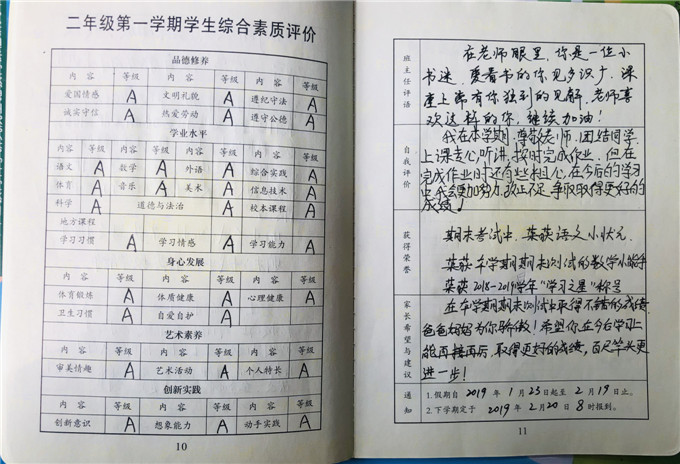 二年级第一学期学生综合素质评价
品德修养
内容 等级 内容 等级 内容 等级
爱国情感 A 文明礼貌 A 遵纪守法 A
诚实守信 A 热爱劳动 A 遵守公德 A
学业水平
内容 等级 内容 等级 内容 等级 内容 等级
语文 A 数学 A 外语 A 综合实践 A
体育 A 音乐 A 美术 A 信息技术 A
科学 A 道德与法治 A 校本课程 A
地方课程
学习习惯 A 学习情感 A 学习能力 A
身心发展
内容 等级 内容 等级 内容 等级
体育锻炼 A 体质健康 A 心理健康 A
卫生习惯 A 自爱自护 A
艺术素养
内容 等级 内容 等级 内容 等级
审美情趣 A 艺术活动 A 个人特长 A
创新实践
内容 等级 内容 等级 内容 等级
创新意识 A 想象能力 A 动手实践 A
10
班主任评语
在老师眼里，你是一位小
书迷，爱看书的你见多识广，课
堂上常有你独到的见解，老师喜
欢这样的你，继续加油！
自我评价
我在本学期，尊敬老师，团结同学，
上课专心听讲，按时完成作业，但在
完成作业时还有些粗心，在今后的学习
中我会更加努力，改正不足，争取取得更好的
成绩！
获得荣誉
期末考试中，荣获语文小状元
荣获本学期期末测试的数学小能手
荣获2018-2019学年“学习之星”称号
家长希望与建议
在本学期期末测试中取得不错的成绩，
爸爸妈妈为你骄傲！希望你在今后学习上
能再接再厉，取得更好的成绩，百尺竿头更
进一步！
通知
1.假期自 2019 年 1 月 23 日起至 2 月 19 日止。
2.下学期定于 2019 年 2 月 20 日 8 时报到。
11